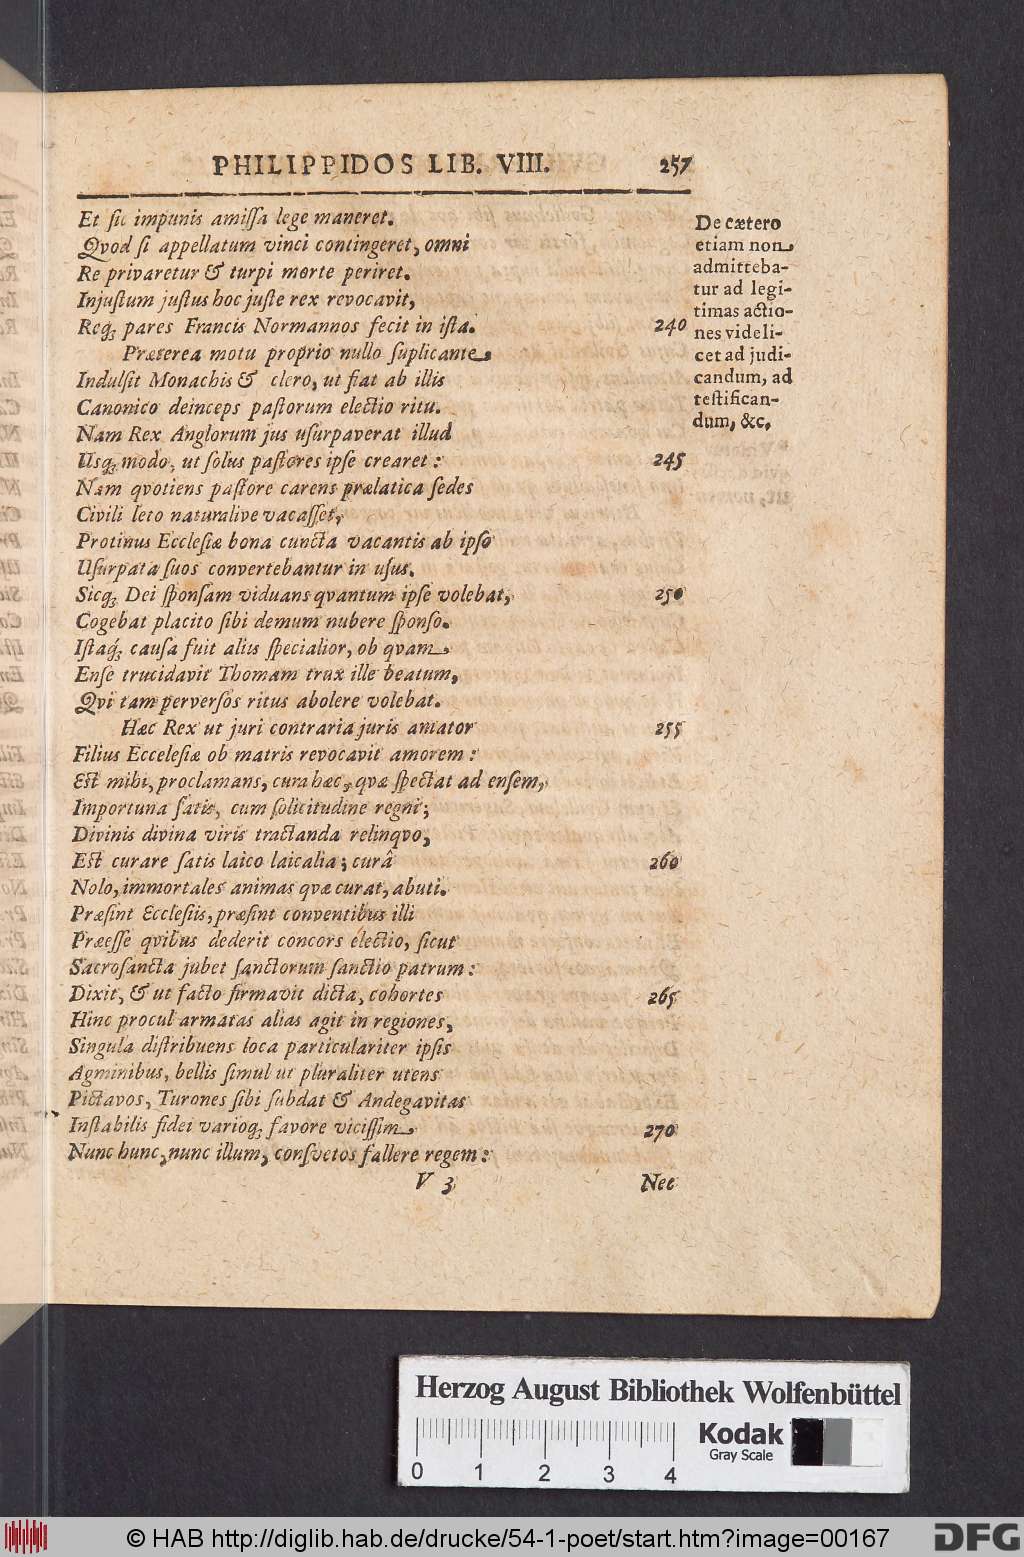 PHILIPPIDOS LIB. VIII. 257
Et sic impunis amiſſa lege maneret.
Qvod ſi appellatum vinci contingeret, omni
Re privaretur & turpi morte periret.
Injuſtum juſtus hoc juſte rex revocavit,
Reqꝫ pares Francis Normannos fecit in iſta. 240
Præterea motu proprio nullo ſuplicante,
Indulſit Monachis & clero, ut fiat ab illis
Canonico deinceps paſtorum electio ritu.
Nam Rex Anglorum jus uſurpaverat illud
Uſqꝫ modo, ut ſolus paſtores ipſe crearet: 245
Nam qvotiens paſtore carens prælatica ſedes
Civili leto naturalive vacaſſet,
Protinus Eccleſiæ bona cuncta vacantis ab ipſo
Uſurpata ſuos convertebantur in uſus.
Sicqꝫ Dei ſponſam viduans qvantum ipſe volebat, 250
Cogebat placito ſibi demum nubere ſponſo.
Iſtaqꝫ́ cauſa fuit aliis ſpecialior, ob qvam
Enſe trucidavit Thomam trux ille beatum,
Qvi tam perverſos ritus abolere volebat.
Hæc Rex ut juri contraria juris amator 255
Filius Ecceleſiæ ob matris revocavit amorem:
Eſt mihi, proclamans, cura hæc, qvæ ſpectat ad enſem,
Importuna ſatis, cum ſolicitudine regni;
Divinis divina viris tractanda relinqvo,
Eſt curare ſatis laico laicalia; curâ 260
Nolo, immortales animas qvæ curat, abuti.
Præſint Eccleſiis, præſint conventibus illi
Præeſſe qvibus dederit concors electio, ſicut
Sacroſancta jubet ſanctorum ſanctio patrum:
Dixit, & ut facto firmavit dicta, cohortes 265
Hinc procul armatas alias agit in regiones,
Singula diſtribuens loca particulariter ipſis
Agminibus, bellis ſimul ut pluraliter utens
Pictavos, Turones ſibi ſubdat & Andegavitas
Inſtabilis fidei varioqꝫ favore viciſſim 270
Nunc hunc, nunc illum, conſvetos fallere regem:
V 3 Nec
De cætero
etiam non
admitteba-
tur ad legi-
timas actio-
nes videli-
cet ad judi-
candum, ad
teſtifican-
dum, &c,
Herzog August Bibliothek Wolfenbüttel
0 1 2 3 4
Kodak
Gray Scale
© HAB http://diglib.hab.de/drucke/54-1-poet/start.htm?image=00167
DFG